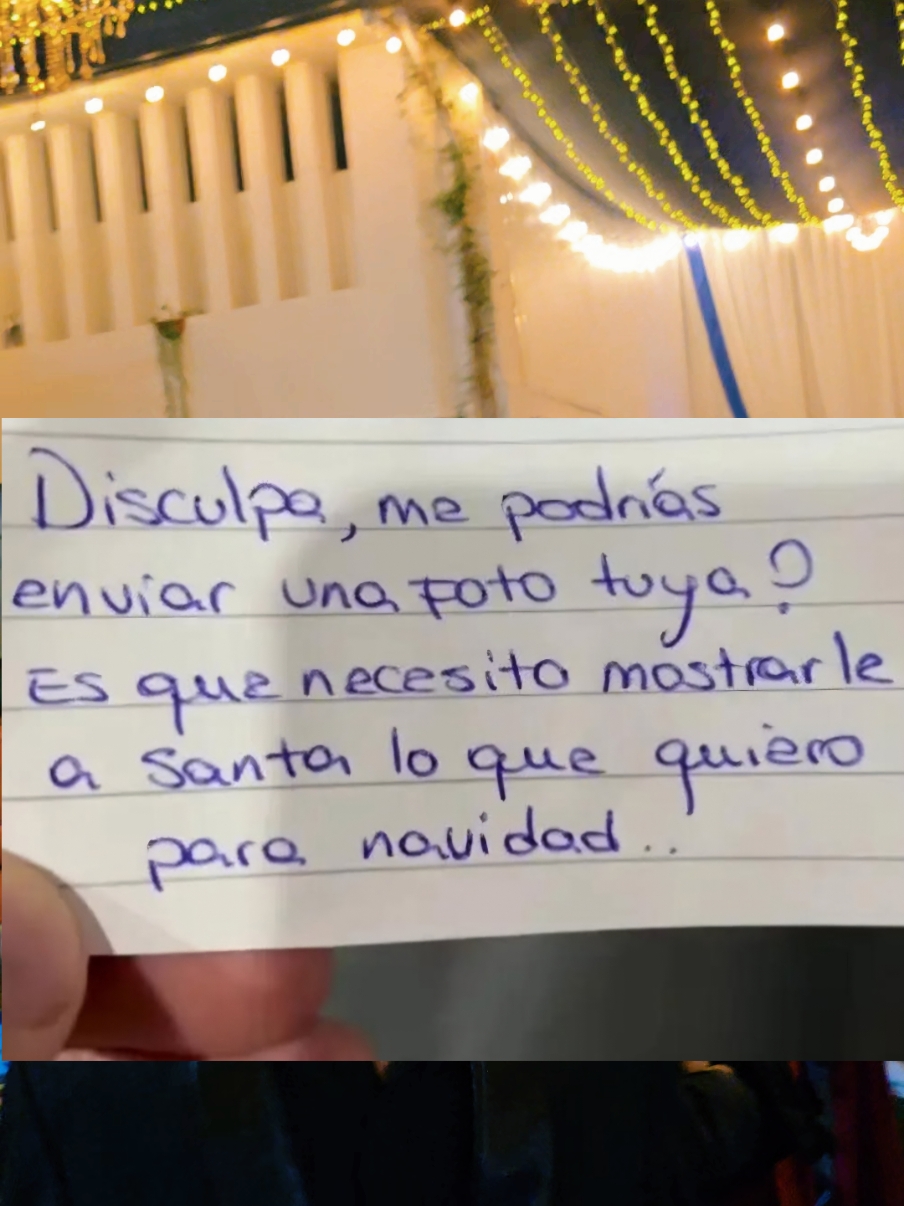 Disculpa, me podrías
enviar una foto tuya?
Es que necesito mostrarle
a Santa lo que quiero
para navidad..